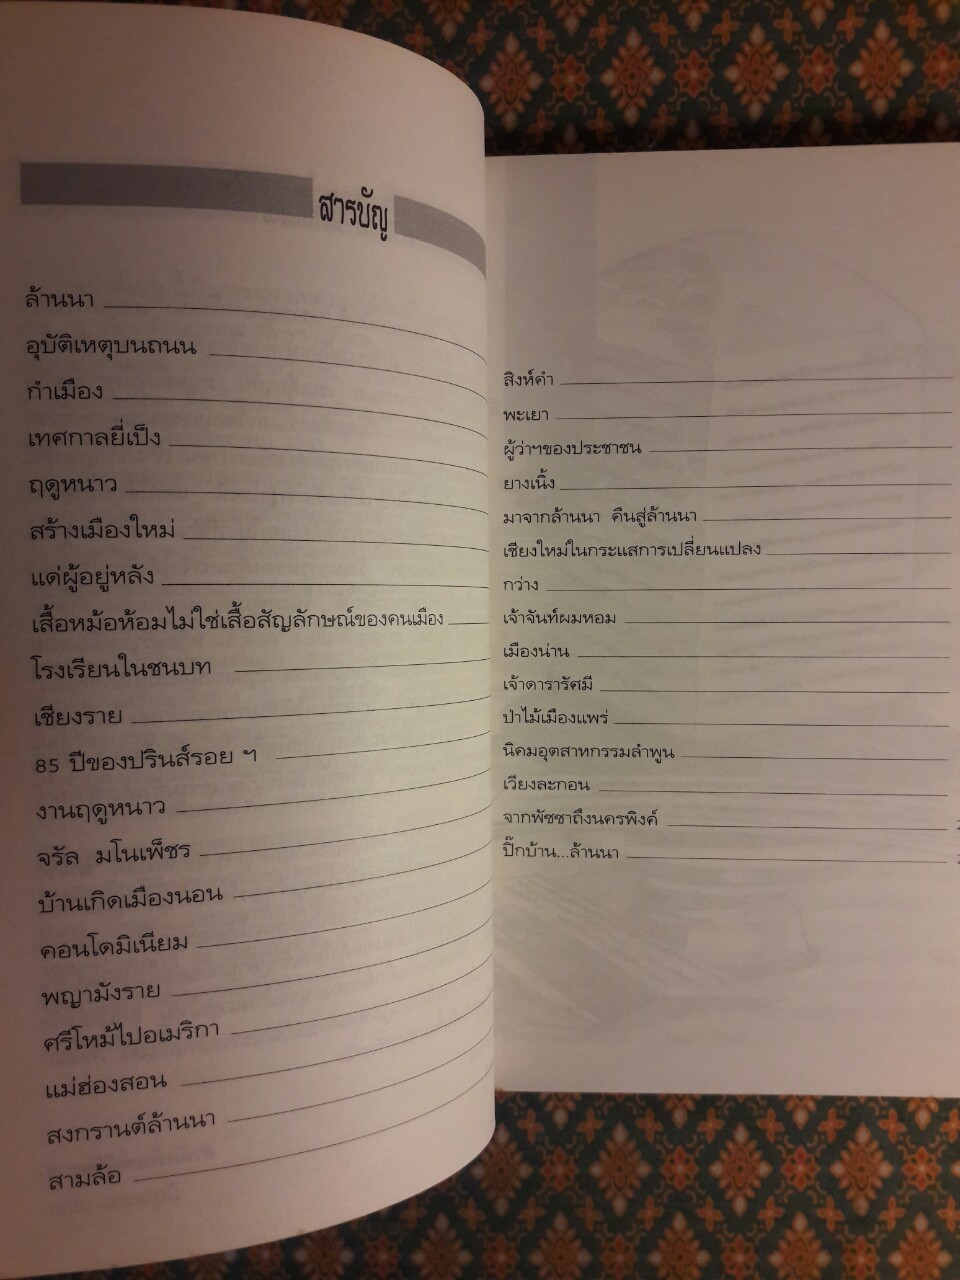 สารบัญ
ล้านนา
อุบัติเหตุบนถนน
กำเมือง
เทศกาลยี่เป็ง
ฤดูหนาว
สร้างเมืองใหม่
แด่ผู้อยู่หลัง
เสื้อหม้อห้อมไม่ใช่เสื้อสัญลักษณ์ของคนเมือง
โรงเรียนในชนบท
เชียงราย
85 ปีของปรินส์รอย ฯ
งานฤดูหนาว
จรัล มโนเพ็ชร
บ้านเกิดเมืองนอน
คอนโดมิเนียม
พญามังราย
ศรีโหม้ไปอเมริกา
แม่ฮ่องสอน
สงกรานต์ล้านนา
สามล้อ
สิงห์คำ
พะเยา
ผู้ว่าฯของประชาชน
ยางเนิ้ง
มาจากล้านนา คืนสู่ล้านนา
เชียงใหม่ในกระแสการเปลี่ยนแปลง
กว่าง
เจ้าจันท์ผมหอม
เมืองน่าน
เจ้าดารารัศมี
ป่าไม้เมืองแพร่
นิคมอุตสาหกรรมลำพูน
เวียงละกอน
จากพัชชาถึงนครพิงค์
ปิ๊กบ้าน...ล้านนา